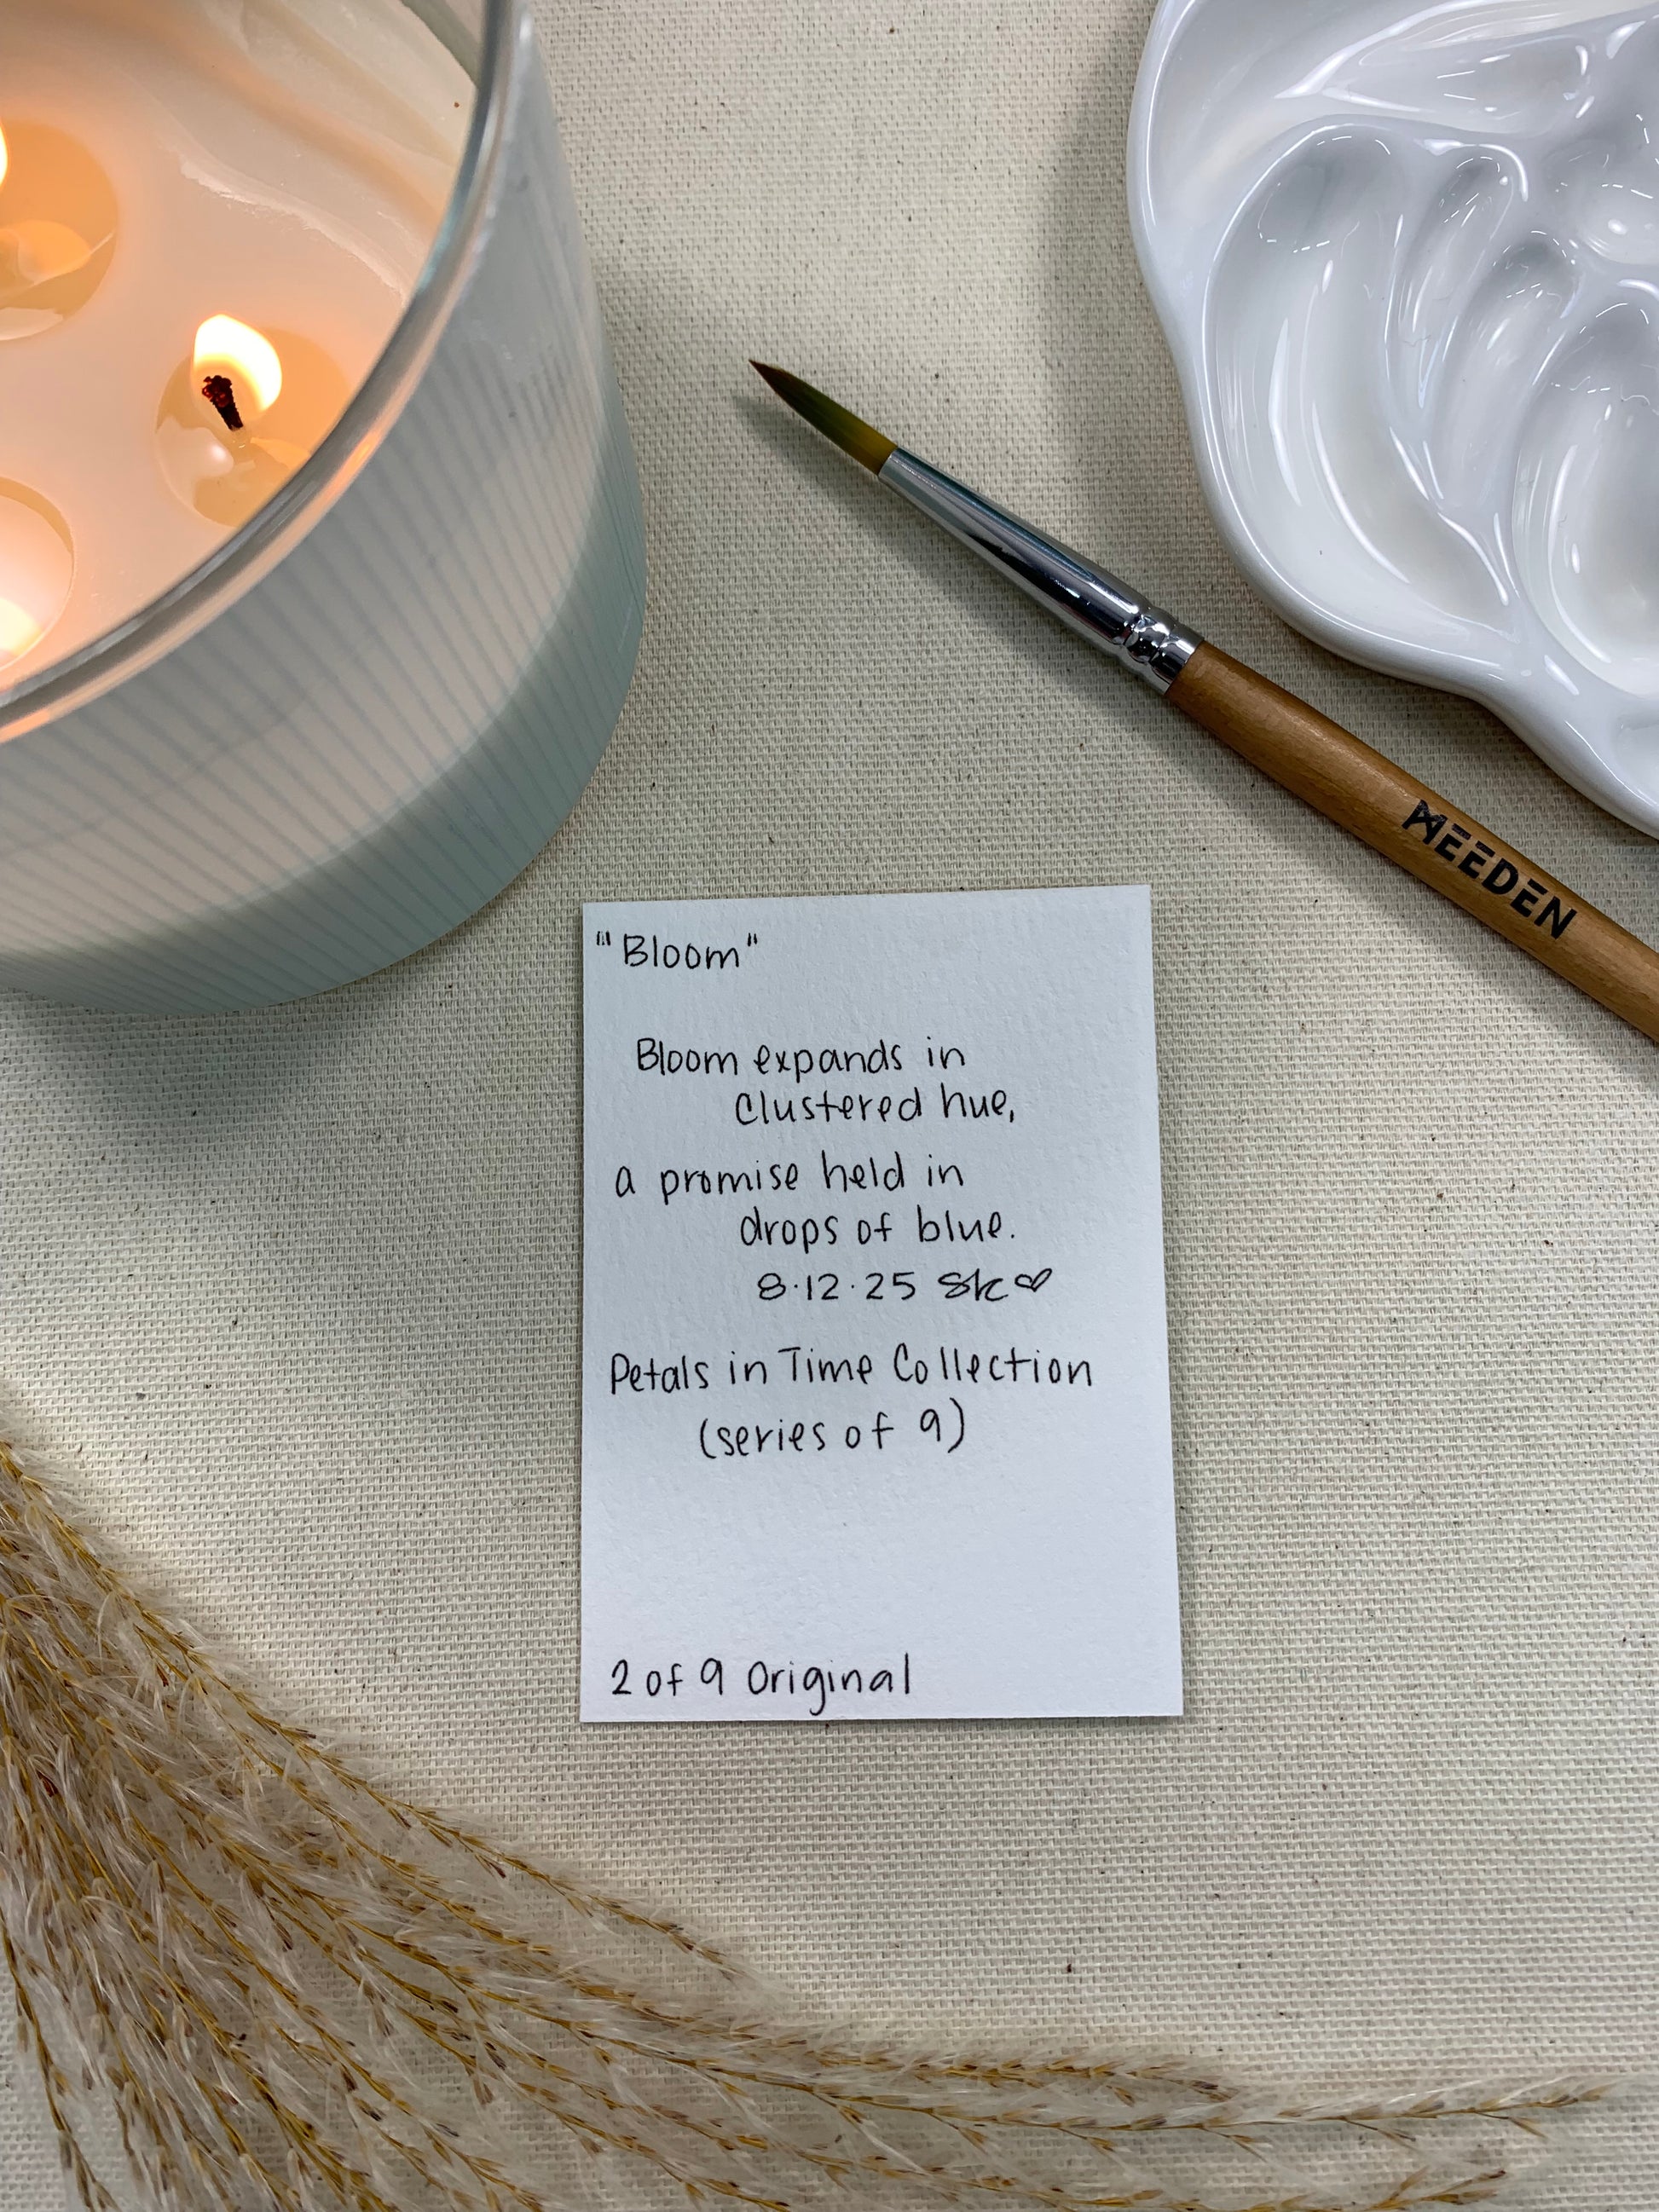 "Bloom"
Bloom expands in
clustered hue,
a promise held in
drops of blue.
8.12.25 SK♡
Petals in Time Collection
(series of 9)
2 of 9 Original
MEEDEN